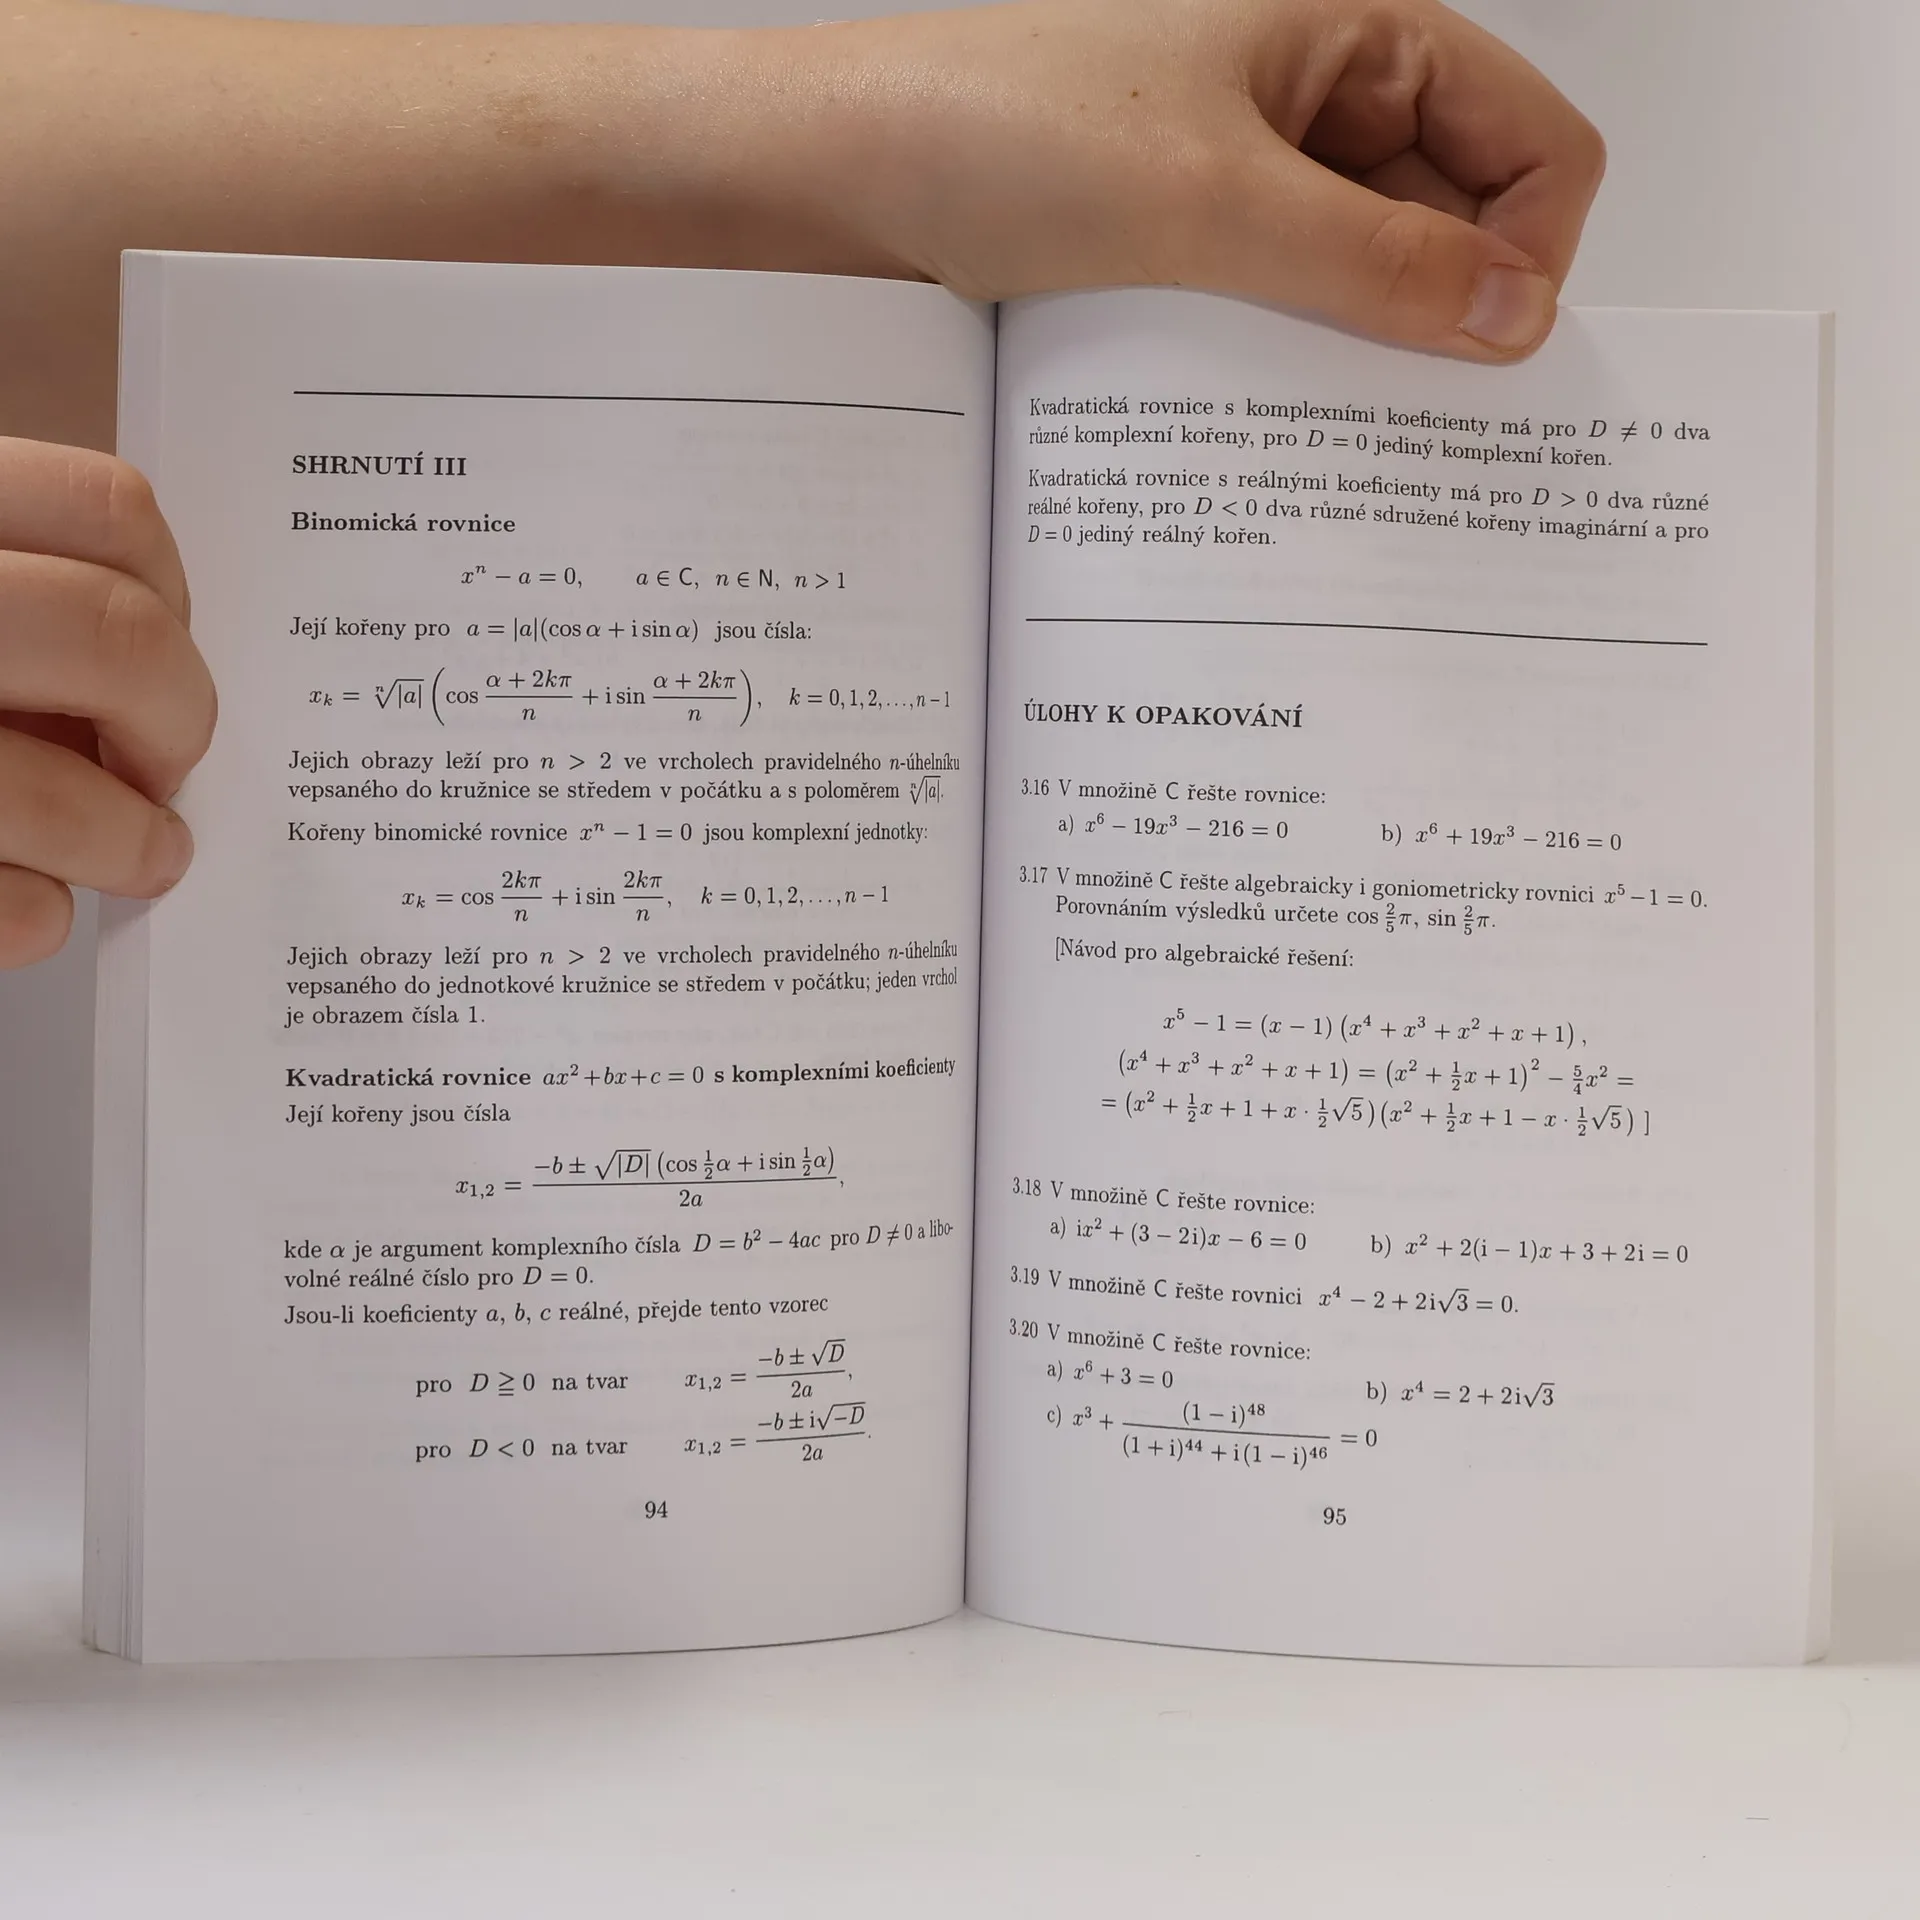 SHRNUTÍ III
Binomická rovnice
xⁿ − a = 0, a ∈ C, n ∈ N, n > 1
Její kořeny pro a = |a|(cos α + i sin α) jsou čísla:
xₖ = ⁿ√|a| (cos (α + 2kπ)/n + i sin (α + 2kπ)/n), k = 0, 1, 2, …, n − 1
Jejich obrazy leží pro n > 2 ve vrcholech pravidelného n-úhelníku
vepsaného do kružnice se středem v počátku a s poloměrem ⁿ√|a|.
Kořeny binomické rovnice xⁿ − 1 = 0 jsou komplexní jednotky:
xₖ = cos 2kπ/n + i sin 2kπ/n, k = 0, 1, 2, …, n − 1
Jejich obrazy leží pro n > 2 ve vrcholech pravidelného n-úhelníku
vepsaného do jednotkové kružnice se středem v počátku; jeden vrchol
je obrazem čísla 1.
Kvadratická rovnice ax² + bx + c = 0 s komplexními koeficienty
Její kořeny jsou čísla
x₁,₂ = (−b ± √|D| (cos ½α + i sin ½α))/2a,
kde α je argument komplexního čísla D = b² − 4ac pro D ≠ 0 a libo-
volné reálné číslo pro D = 0.
Jsou-li koeficienty a, b, c reálné, přejde tento vzorec
pro D ≧ 0 na tvar x₁,₂ = (−b ± √D)/2a,
pro D < 0 na tvar x₁,₂ = (−b ± i√−D)/2a.
94
Kvadratická rovnice s komplexními koeficienty má pro D ≠ 0 dva
různé komplexní kořeny, pro D = 0 jediný komplexní kořen.
Kvadratická rovnice s reálnými koeficienty má pro D > 0 dva různé
reálné kořeny, pro D < 0 dva různé sdružené kořeny imaginární a pro
D = 0 jediný reálný kořen.
ÚLOHY K OPAKOVÁNÍ
3.16 V množině C řešte rovnice:
a) x⁶ − 19x³ − 216 = 0 b) x⁶ + 19x³ − 216 = 0
3.17 V množině C řešte algebraicky i goniometricky rovnici x⁵ − 1 = 0.
Porovnáním výsledků určete cos ⅖π, sin ⅖π.
[Návod pro algebraické řešení:
x⁵ − 1 = (x − 1) (x⁴ + x³ + x² + x + 1),
(x⁴ + x³ + x² + x + 1) = (x² + ½x + 1)² − 5/4x² =
= (x² + ½x + 1 + x · ½√5) (x² + ½x + 1 − x · ½√5) ]
3.18 V množině C řešte rovnice:
a) ix² + (3 − 2i)x − 6 = 0 b) x² + 2(i − 1)x + 3 + 2i = 0
3.19 V množině C řešte rovnici x⁴ − 2 + 2i√3 = 0.
3.20 V množině C řešte rovnice:
a) x⁶ + 3 = 0 b) x⁴ = 2 + 2i√3
c) x³ + (1 − i)⁴⁸/((1 + i)⁴⁴ + i(1 − i)⁴⁶) = 0
95